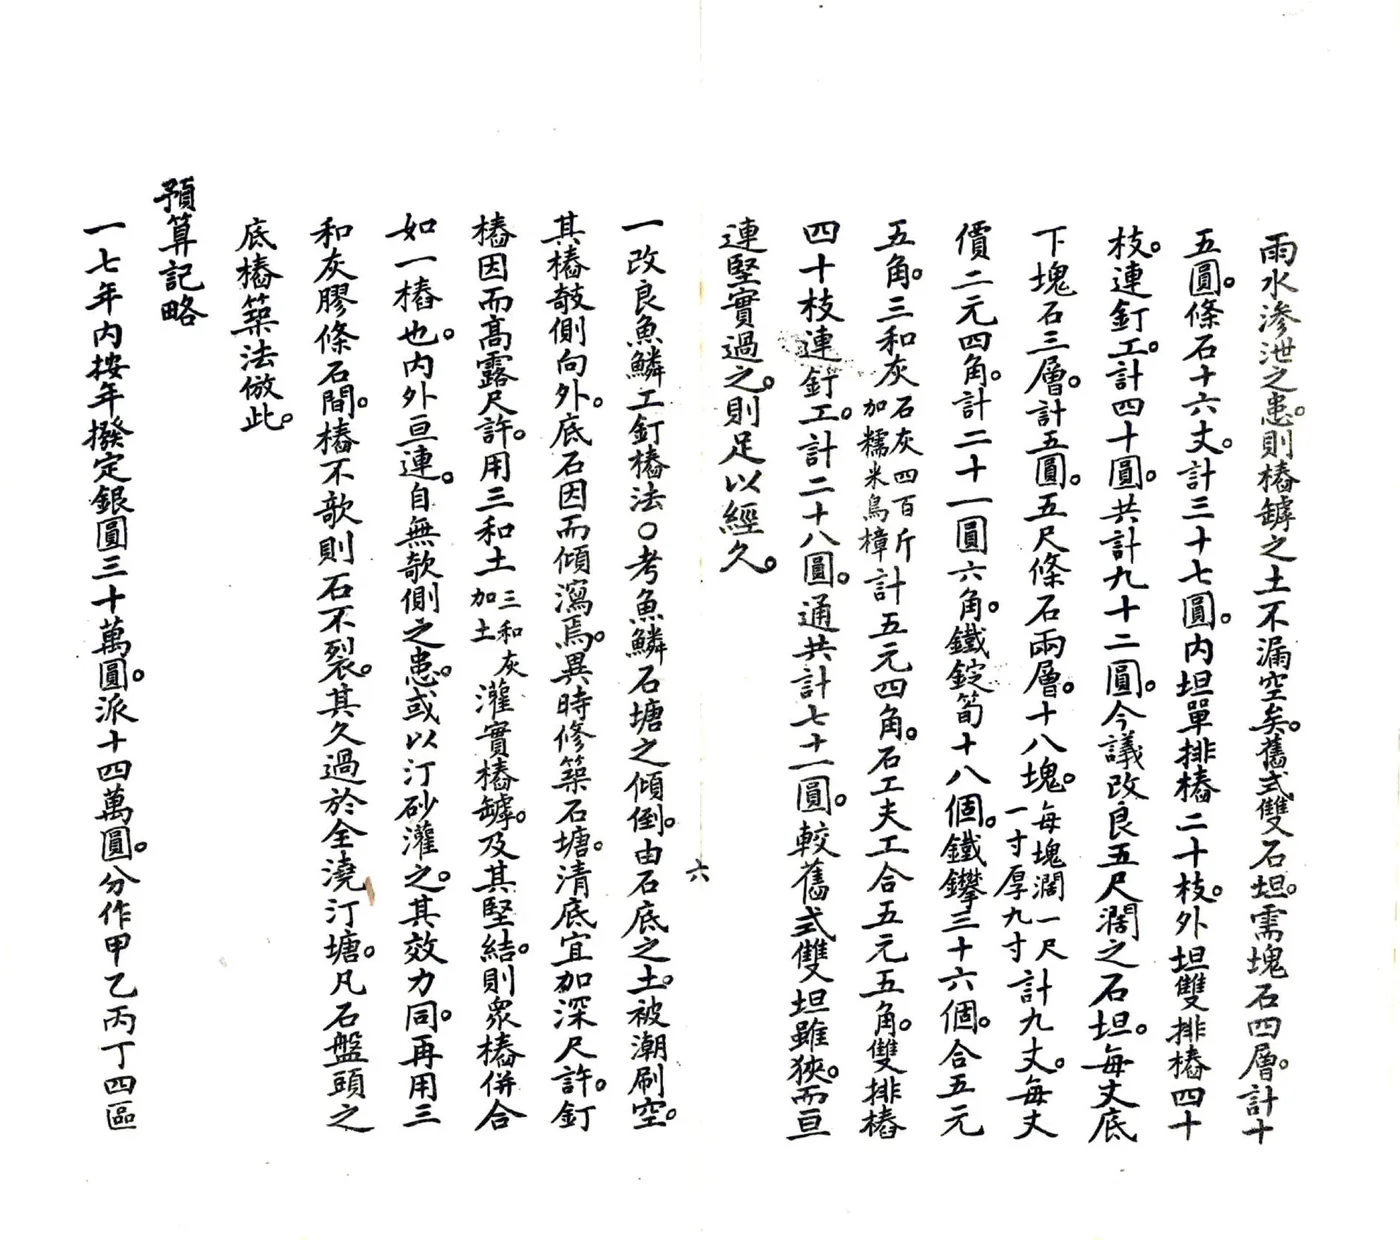 雨水滲泄之患。則樁罅之土不漏空矣。舊式雙石坦。需塊石四層。計十
五圓。條石十六丈。計三十七圓。內坦單排樁二十枝。外坦雙排樁四十
枝。連釘工。計四十圓。共計九十二圓。今議改良五尺濶之石坦。每丈底
下塊石三層。計五圓。五尺條石兩層。十八塊。每塊濶一尺一寸厚九寸計九丈。每丈
價二元四角。計二十一圓六角。鐵錠筍十八個。鐵攀三十六個。合五元
五角。三和灰石灰四百斤加糯米烏樟計五元四角。石工夫工合五元五角。雙排樁
四十枝連釘工。計二十八圓。通共計七十一圓。較舊式雙坦雖狹。而亘
連堅實過之。則足以經久。
六
一改良魚鱗工釘樁法〇考魚鱗石塘之傾倒。由石底之土。被潮刷空。
其樁攲側向外。底石因而傾瀉焉。異時修築石塘。清底宜加深尺許。釘
樁因而高露尺許。用三和土三和灰加土灌實樁罅。及其堅結。則衆樁併合
如一樁也。內外亘連。自無攲側之患。或以汀砂灌之。其效力同。再用三
和灰膠條石間。樁不歌則石不裂。其久過於全澆汀塘。凡石盤頭之
底樁築法倣此。
預算記略
一七年內按年撥定銀圓三十萬圓。派十四萬圓。分作甲乙丙丁四區